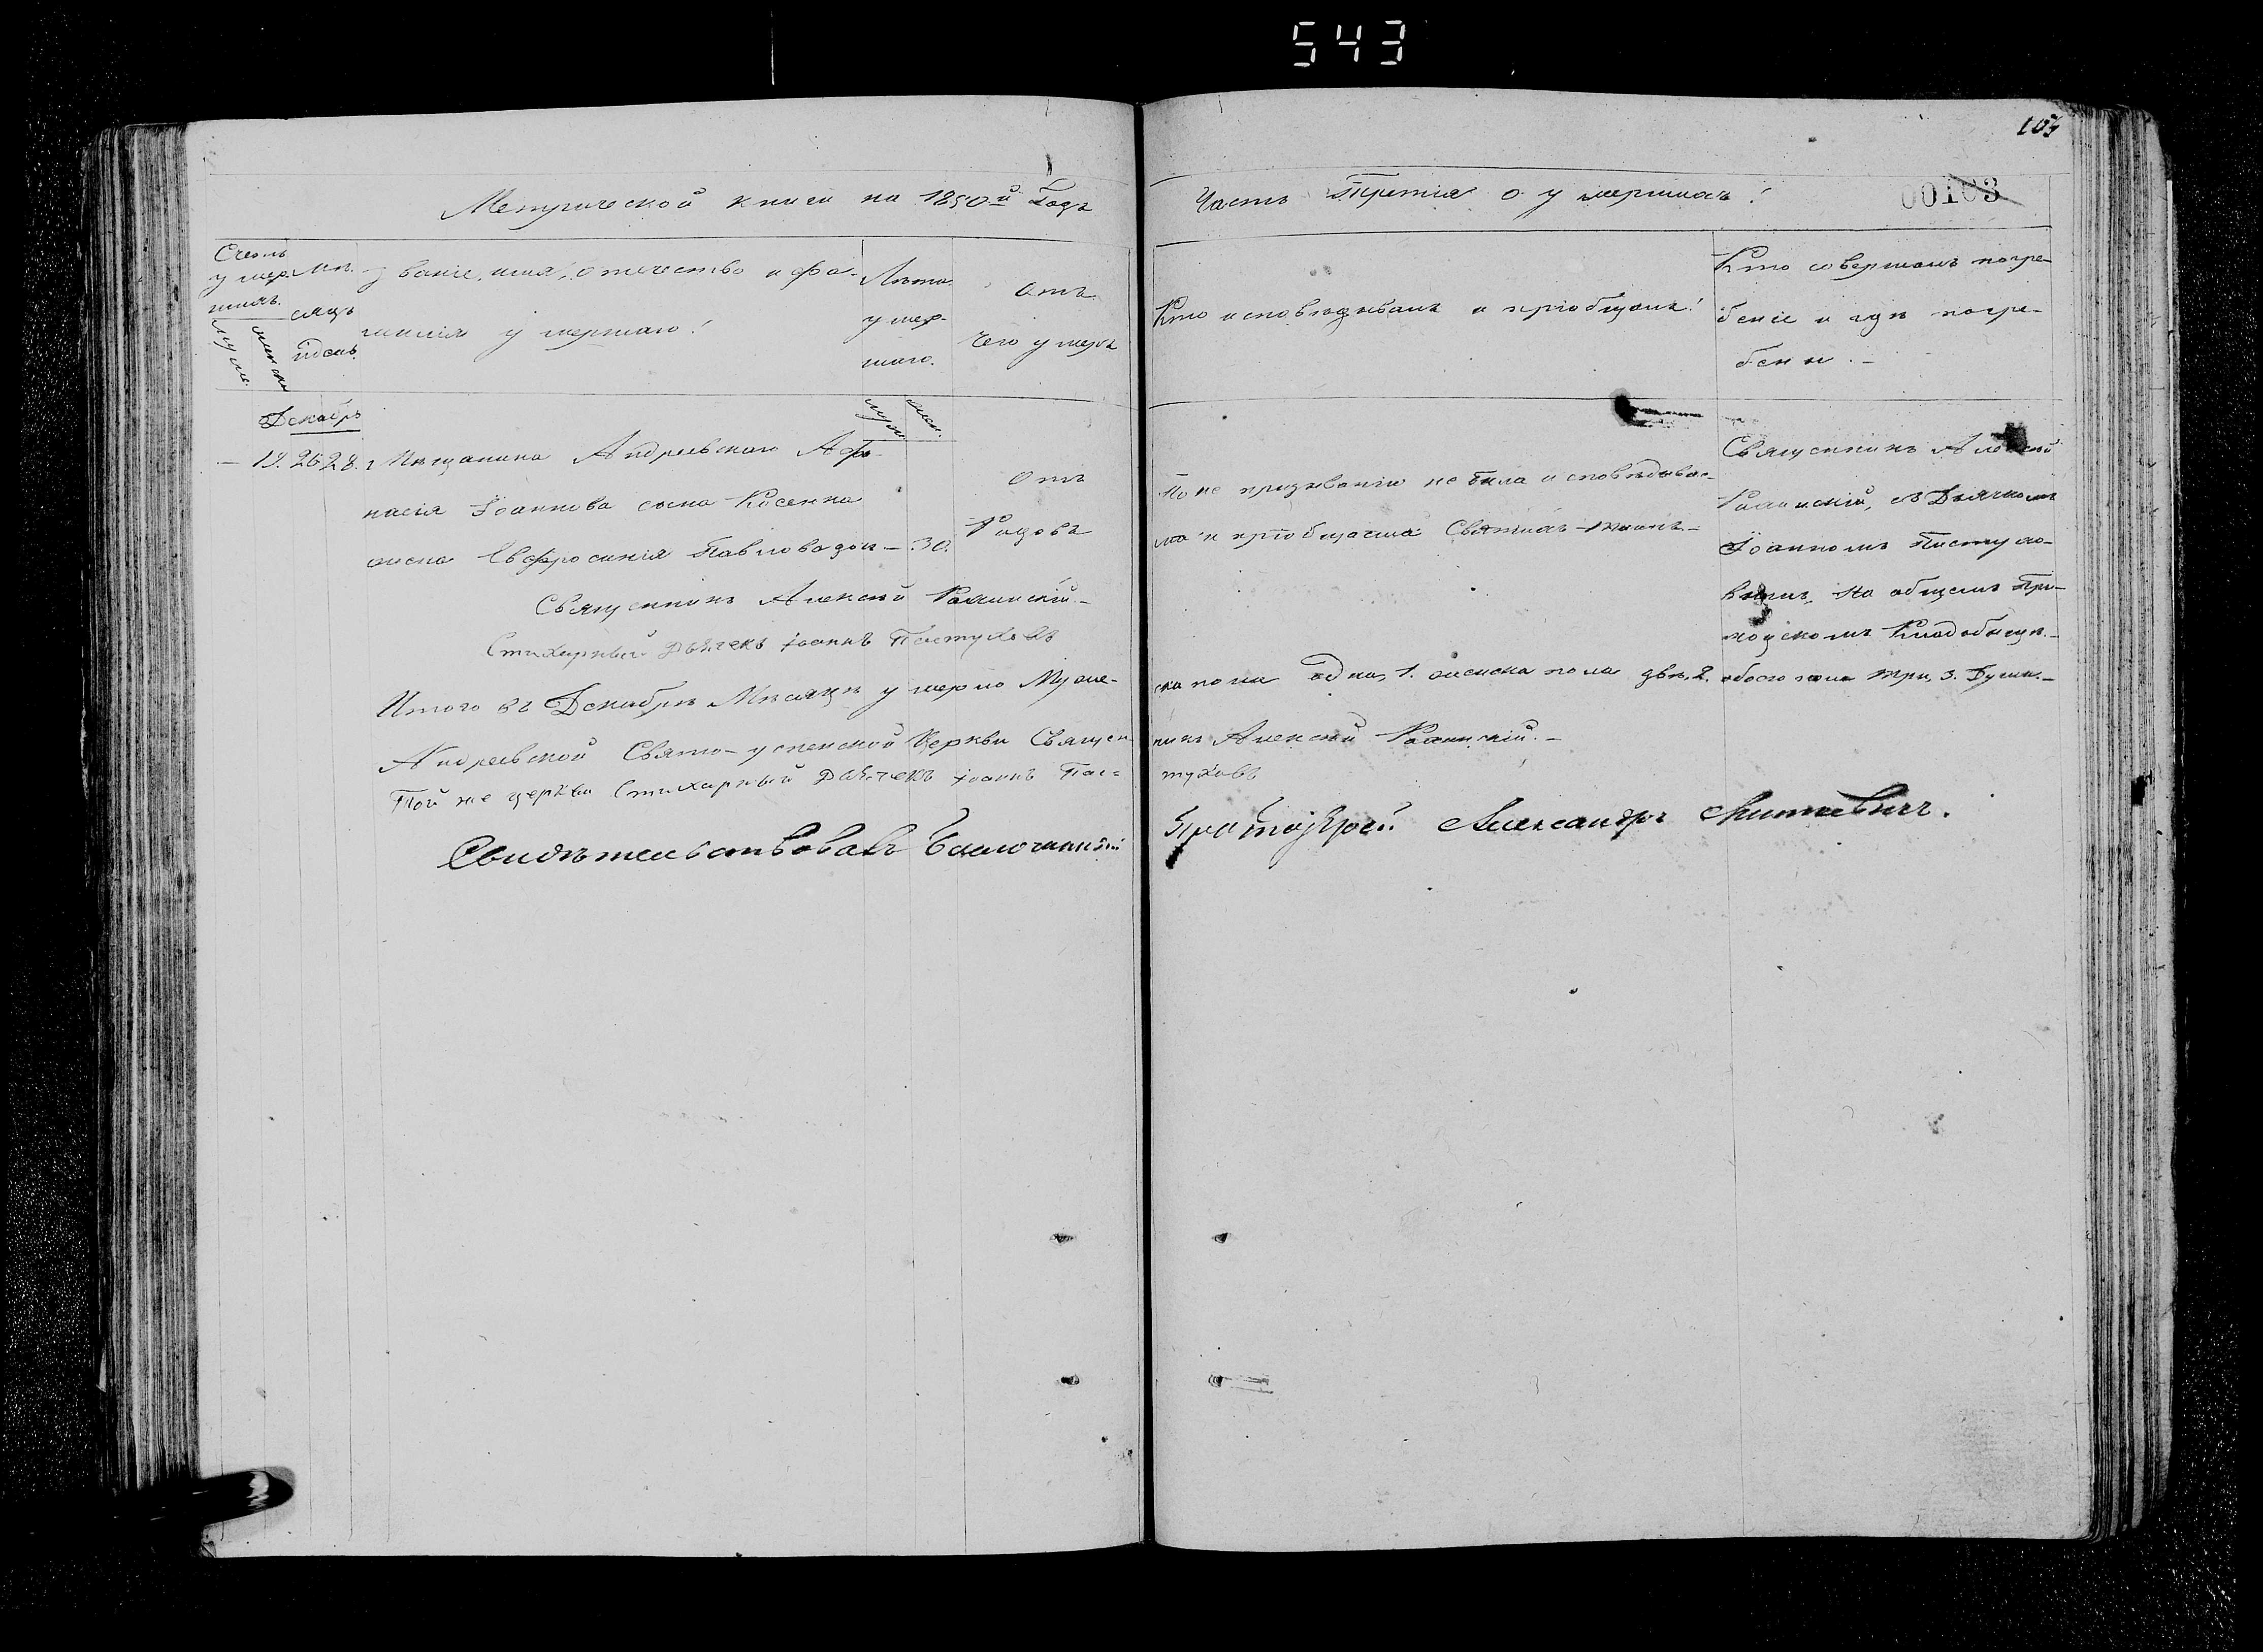 543
103
00103
Метрической книги на 1850й Годъ
Часть Третія о умершихъ!
Счетъ
умер-
шихъ.
Муже.
женски
Мѣ-
сяцъ
и день
званіе, имя, отечество и фа-
милія умершаго!
Лѣта
умер-
шаго.
Отъ
чего умеръ
Кто исповѣдывалъ и пріобщалъ!
Кто совершалъ погре-
беніе и гдѣ погре-
бены.-
Декабрь
муж.
жен.
— 19. 26 28. Мѣщанина Андреевскаго Афа-
насія Іоаннова сына Косенка
жена Евфросинія Павлова доч- 30.
отъ
Родовъ
По не призыванію не была исповѣдыва-
ма и пріобщаема Святыхъ Таинъ-
Священникъ Алексѣй
съ Дьячкомъ
Іоанномъ Пастухо-
вымъ, На общемъ При-
ходскомъ Кладбищѣ.-
Священникъ Алексѣй
Стихарный Дьячекъ Іоаннъ Пастуховъ
Итого въ Декабрѣ Мѣсяцѣ умерло Муже-
ска пола одна, 1. женска пола двѣ, 2. обоего пола три, 3. Души.-
Андреевской Свято-успенской Церкви Священ-
никъ Алексѣй
Той же церкви Стихарный Дьячекъ Іоаннъ Пас-
туховъ
Свидѣтельствовалъ Благочинный
Протоіерей Александръ